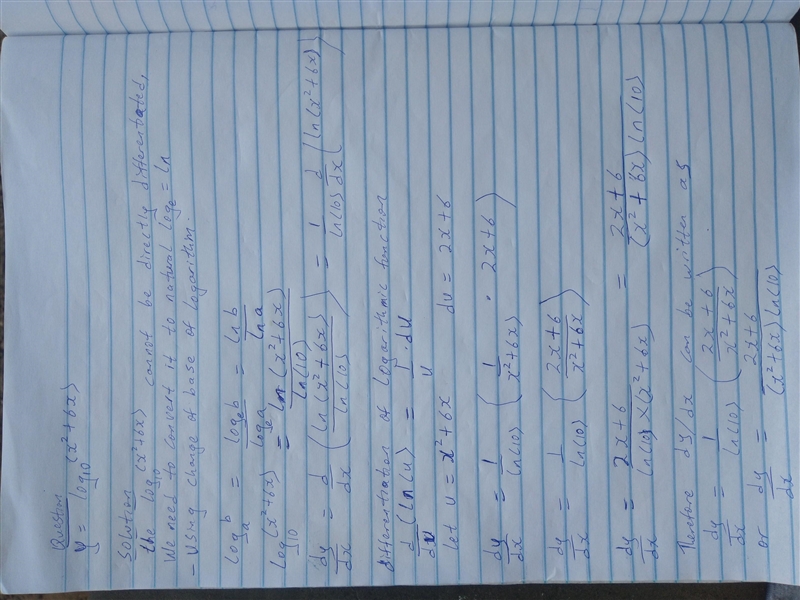 Question
y = log₁₀(x²+6x)
Solution
the log₁₀(x²+6x) cannot be directly differentiated,
We need to convert it to natural logₑ = ln
- Using change of base of logarithm.
logₐb = logₑb / logₑa = ln b / ln a
log₁₀(x²+6x) = ln(x²+6x) / ln(10)
dy/dx = d/dx (ln(x²+6x) / ln(10)) = 1/ln(10) d/dx (ln(x²+6x))
differentiation of logarithmic function
d/du (ln(u)) = 1/u · du
let u = x²+6x du = 2x+6
dy/dx = 1/ln(10) (1/(x²+6x) · 2x+6)
dy/dx = 1/ln(10) ((2x+6)/(x²+6x))
dy/dx = (2x+6) / (ln(10) × (x²+6x)) = (2x+6) / ((x²+6x) ln(10))
Therefore dy/dx can be written as
dy/dx = 1/ln(10) ((2x+6)/(x²+6x)).
or dy/dx = (2x+6) / ((x²+6x) ln(10))